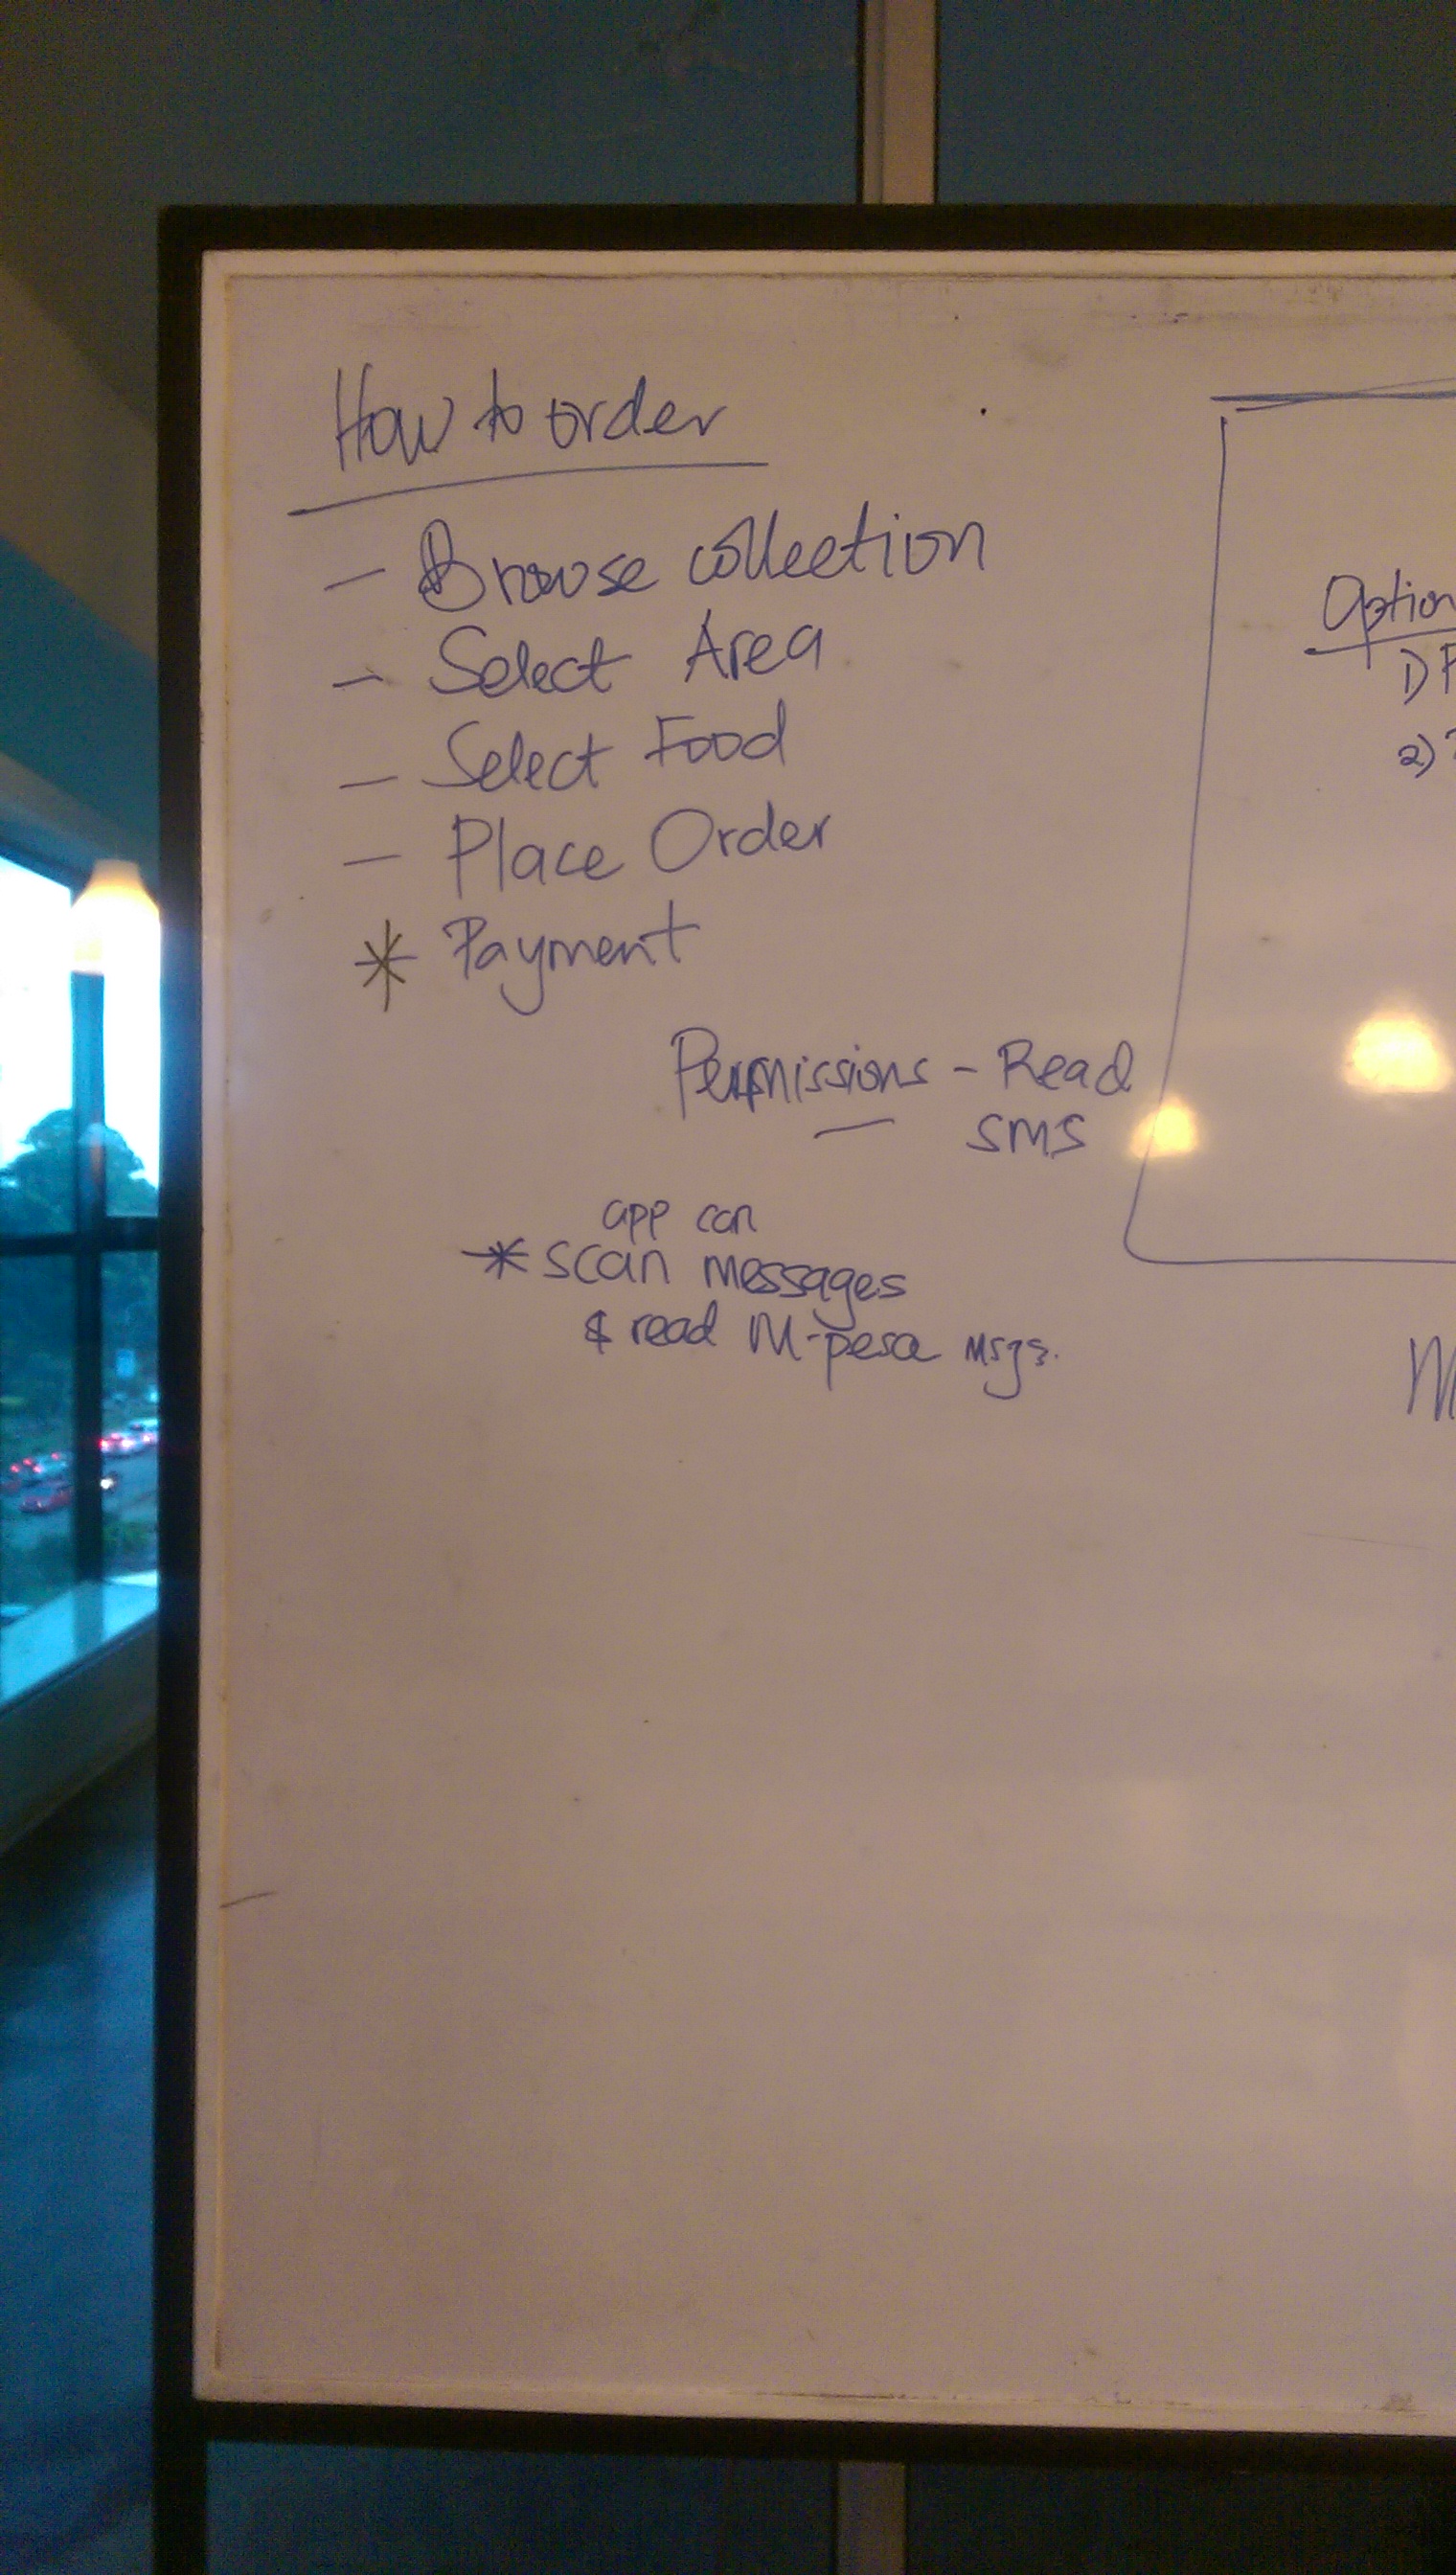 How to order
- Browse collection
- Select Area
- Select Food
- Place Order
* Payment
Permissions - Read
SMS
app can
* scan messages
& read M-pesa msgs.
Option
1) P
2)
M